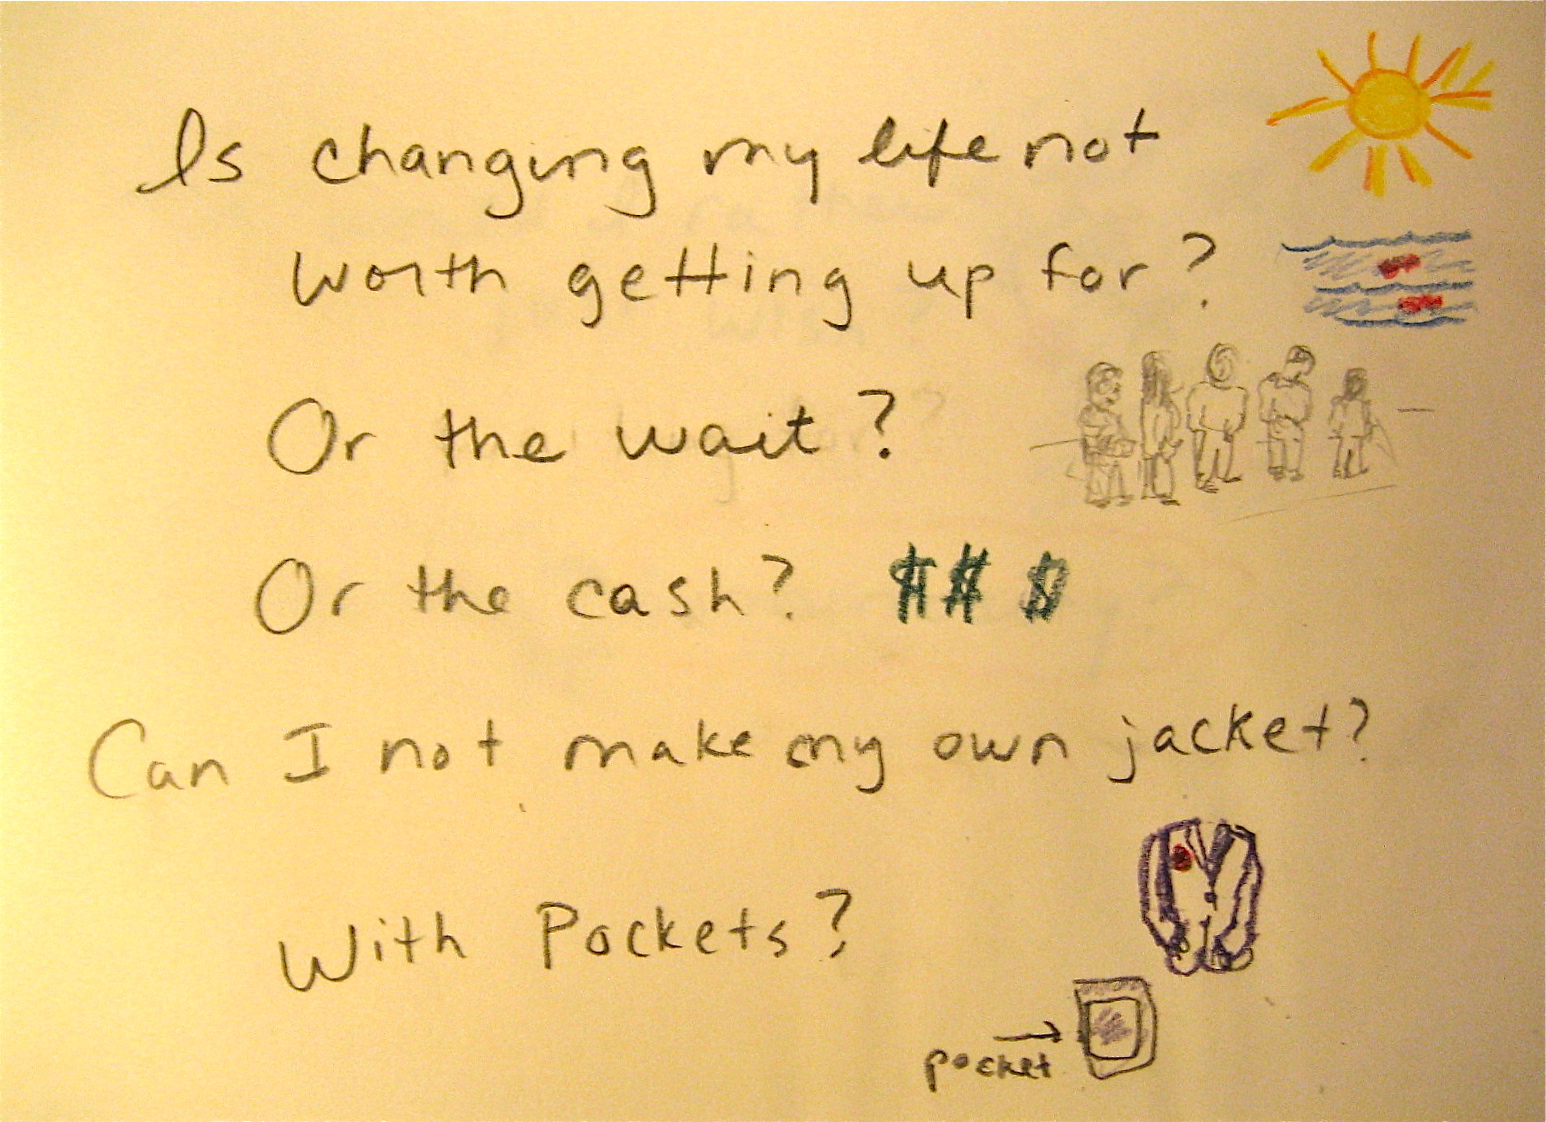 Is changing my life not
worth getting up for?
Or the wait?
Or the cash? $$ $
Can I not make my own jacket?
With Pockets?
pocket